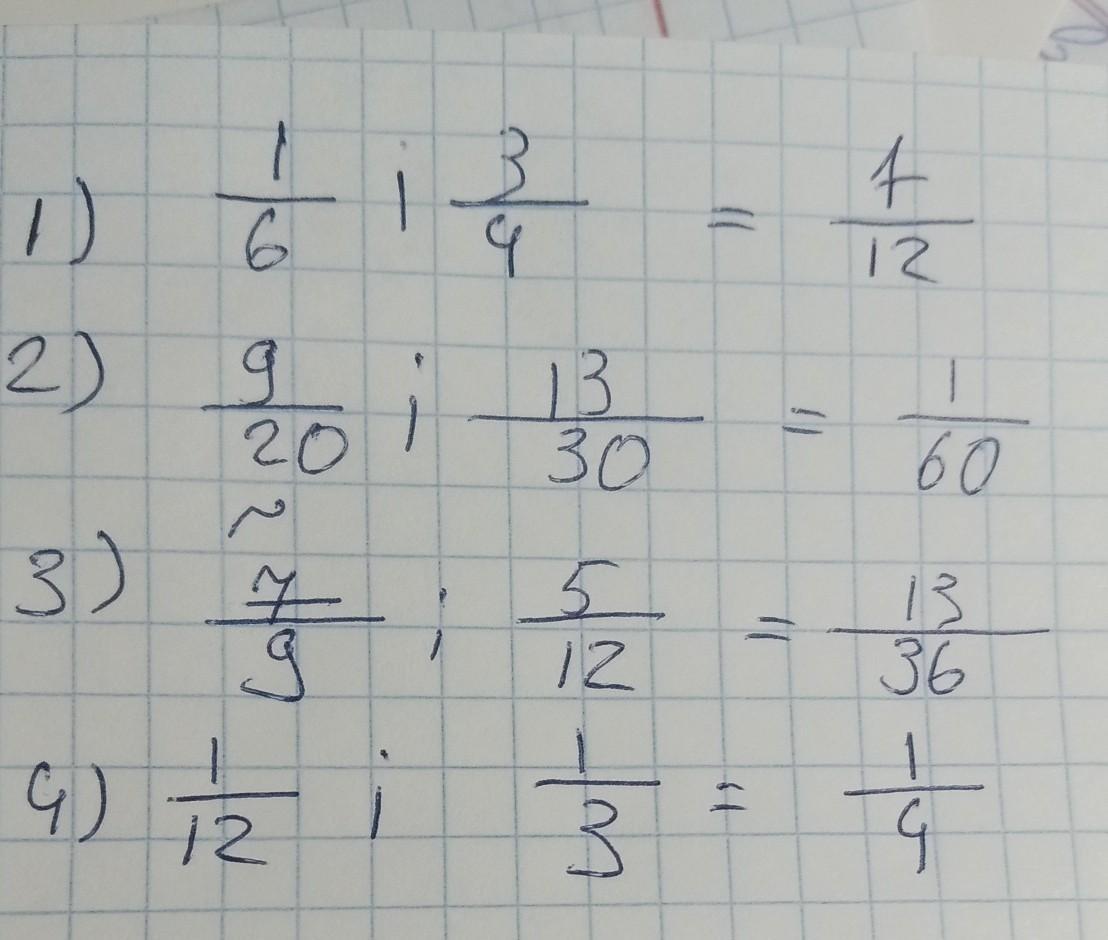 1) 1/6 i 3/4 = 7/12
2) 9/20 i 13/30 = 1/60
3) 7/9 i 5/12 = 13/36
4) 1/12 i 1/3 = 1/4